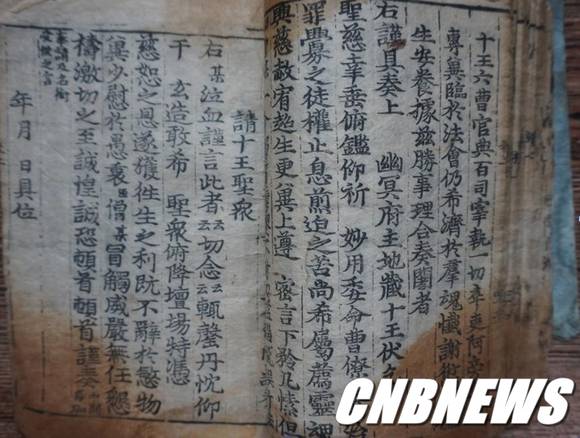 十王六曹官典百司宰執一切卒吏阿
專冀臨於法會仍希濟於羣魂懺謝
生安養據茲勝事理合奏聞者
右謹具奏上 幽冥府主地藏十王伏
聖慈幸垂俯鑑仰祈 妙用委命曹僚
罪釁之徒權止息煎迫之苦尚希屬薦靈
典慈赦宥起生更冀上尊 密言下
請十王聖衆
右某泣血謹言此者云云切念云云輒罄丹忱仰
干 玄造敢希 聖衆俯降壇場特憑
慈恕之恩遂獲徃生之利既不辭於愍物
冀少慰於愚衷因僧某冒觸威嚴無任懇
禱激切之至誠惶誠恐頓首頓首謹奏
年月 日具位
CNBNEWS